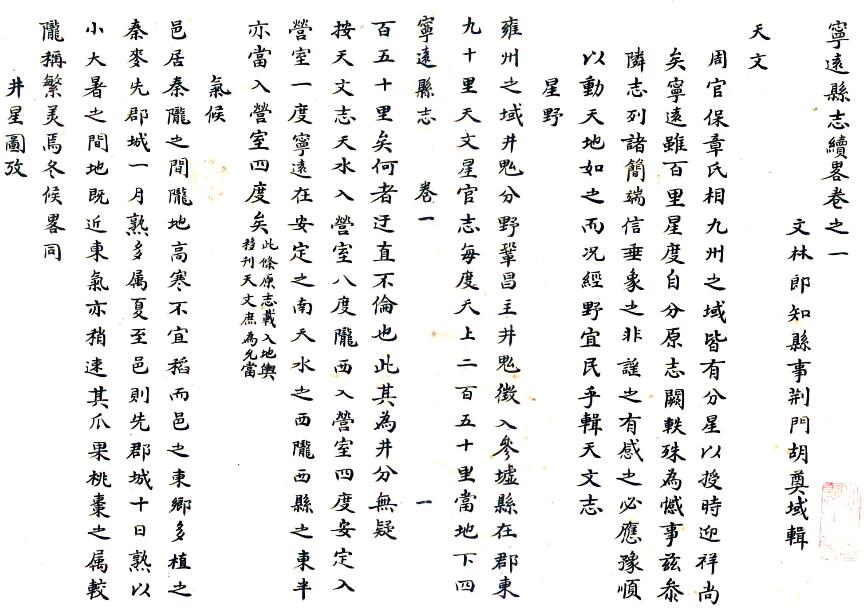 寧遠縣志續畧卷之一
文林郎知縣事荆門胡奠域輯
天文
周官保章氏相九州之域皆有分星以授時迎祥尚
矣寧遠雖百里星度自分原志闕軼殊為憾事茲叅
隣志列諸簡端信垂象之非謹之有感之必應豫順
以動天地如之而况經野宜民乎輯天文志
星野
雍州之域井鬼分野鞏昌主井鬼徵入參墟縣在郡東
九十里天文星官志每度天上二百五十里當地下四
寧遠縣志 卷一 一
百五十里矣何者迂直不倫也此其為井分無疑
按天文志天水入營室八度隴西入營室四度安定入
營室一度寧遠在安定之南天水之西隴西縣之東半
亦當入營室四度矣此條原志載入地輿移刊天文庶為允當
氣候
邑居秦隴之間隴地高寒不宜稻而邑之東鄉多植之
秦麥先郡城一月熟多属夏至邑則先郡城十日熟以
小大暑之間地既近東氣亦稍速其爪果桃棗之属較
隴稱繁美焉冬候畧同
井星圖攷